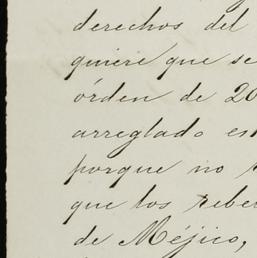 derechos del
quiere que se
órden de 20
arreglado es
porque no
que los rebe
de Méjico,